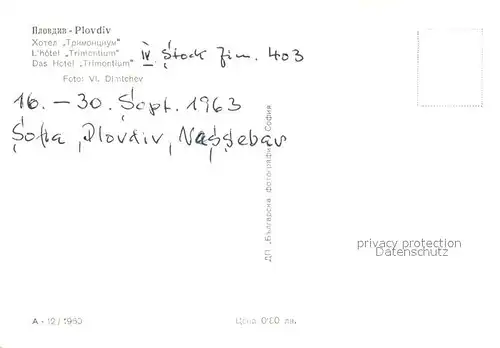 Пловдив - Plovdiv
Хотел „Тримонциум"
L'hôtel „Trimontium"
Das Hotel „Trimontium"
IV. Stock Zim. 403
Foto: Vl. Dimtchev
16. – 30. Sept. 1963
Sofia, Plovdiv, Nassebar
ДП „Българска фотография" София
privacy protection
Datenschutz
А - 12 / 1960
Цена 0'60 лв.